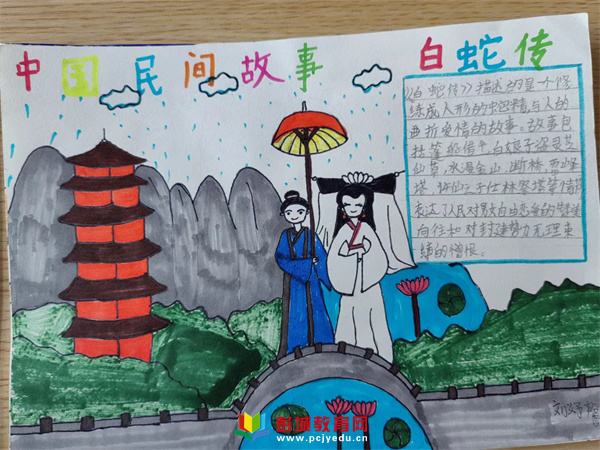 中国民间故事 白蛇传
《白蛇传》描述的是一个修
练成人形的蛇精与人的
曲折爱情的故事。故事包
括篷船借伞,白娘子盗灵芝
仙草,水漫金山,断桥,雷峰
塔,许仙之子仕林祭塔等情节
表达了人民对男女自由恋爱的
向往和对封建势力无理束
缚的憎恨。
彭城教育网
www.pcjyedu.cn